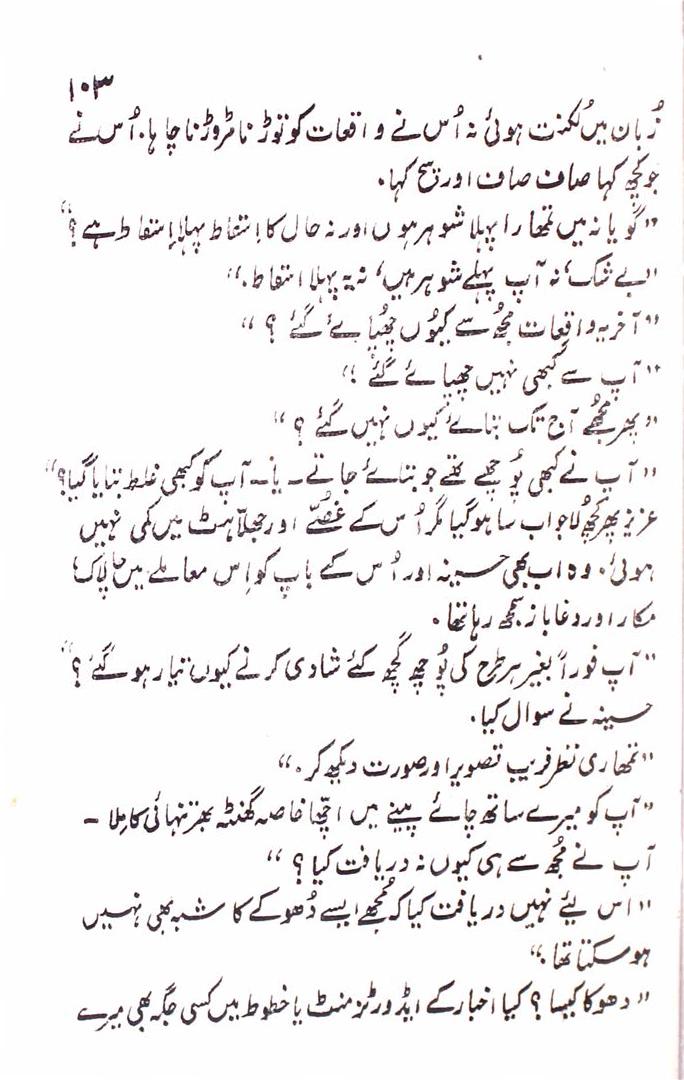 ۱۰۳
زُبان میں لُکنت ہوئی نہ اُس نے واقعات کو توڑنا مڑوڑنا چاہا۔ اُس نے
جو کچھ کہا صاف صاف اور سچ کہا۔
"گویا نہ میں تمھارا پہلا شوہر ہوں اور نہ حال کا اِسقاط پہلا اِسقاط ہے؟"
"بے شک، نہ آپ پہلے شوہر ہیں، نہ یہ پہلا اسقاط۔"
"آخر یہ واقعات مجُھ سے کیوُں چھُپائے گئے؟"
"آپ سے کبھی نہیں چھپائے گئے!"
"پھر مجُھے آج تک بتائے کیوں نہیں گئے؟"
"آپ نے کبھی پُوچھے تھے جو بتائے جاتے۔ یا۔ آپ کو کبھی غلط بتایا گیا؟"
عزیز پھر کچھ لاجواب سا ہو گیا مگر اُس کے غصّے اور جھلّاہٹ میں کمی نہیں
ہوئی۔ وہ اب بھی حسینہ اور اُس کے باپ کو اِس معاملے میں چالاک،
مکار اور دغا باز سمجھ رہا تھا۔
"آپ فوراً بغیر ہر طرح کی پُوچھ گچھ کئے شادی کرنے کیوں تیار ہو گئے؟"
حسینہ نے سوال کیا۔
"تمھاری نظر فریب تصویر اور صورت دیکھ کر۔"
"آپ کو میرے ساتھ چائے پینے میں اچّھا خاصہ گھنٹہ بھر تنہائی کا ملا ۔
آپ نے مُجھ سے ہی کیوں نہ دریافت کیا؟"
"اس لیئے نہیں دریافت کیا کہ مُجھے ایسے دُھوکے کا شبہ بھی نہیں
ہو سکتا تھا۔"
"دھوکا کیسا؟ کیا اخبار کے ایڈورٹزمنٹ یا خطوط میں کسی جگہ بھی میرے